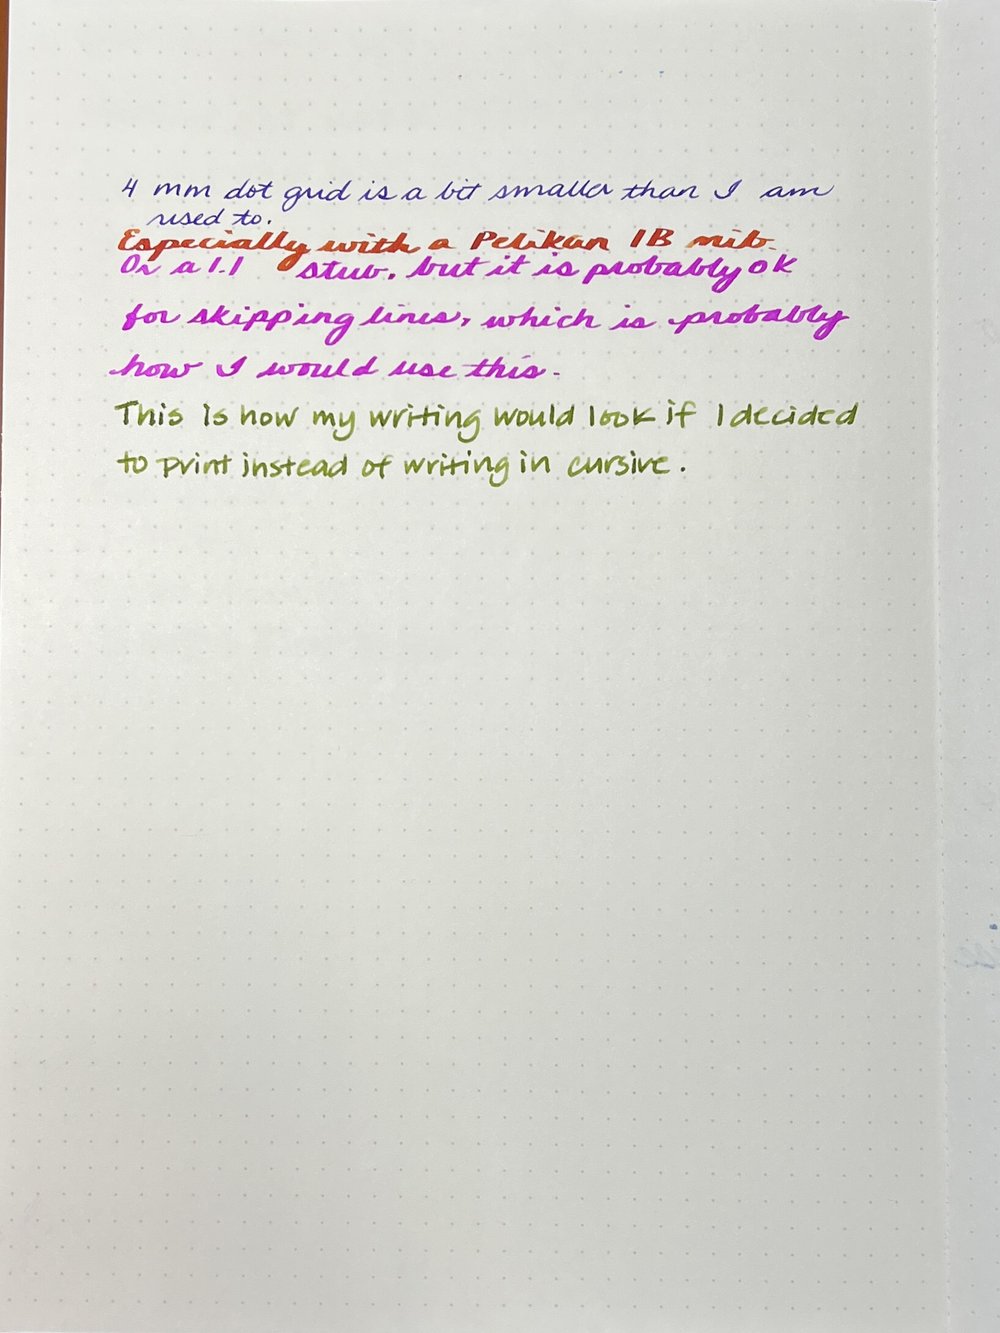 4 mm dot grid is a bit smaller than I am
used to.
Especially with a Pelikan IB nib.
Or a 1.1 stub, but it is probably ok
for skipping lines, which is probably
how I would use this.
This is how my writing would look if I decided
to print instead of writing in cursive.